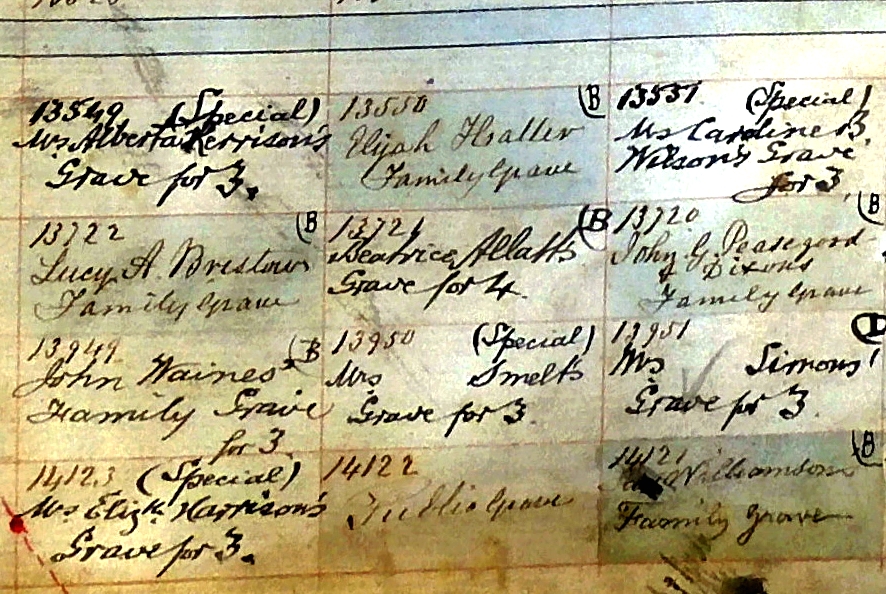 13549 (Special)
Mrs Alberta Kerrison's
Grave for 3.
13550 (B
Elijah
Family Grave
13551 (Special)
Mrs Caroline B.
Wilson's Grave
for 3.
13722 (B
Lucy A. Bristow's
Family Grave
13721 (B
Beatrice Allatt's
Grave for 4.
13720 (B
John G.
& Dixons
Family Grave
13949 (B
John Waines'
Family Grave
for 3
13950 (Special)
Mrs Smelt's
Grave for 3.
13951
Mrs Simons'
Grave for 3.
14123 (Special)
Mrs Elizth Harrison's
Grave for 3.
14122
Public Grave
14121 (B
Williamson
Family Grave